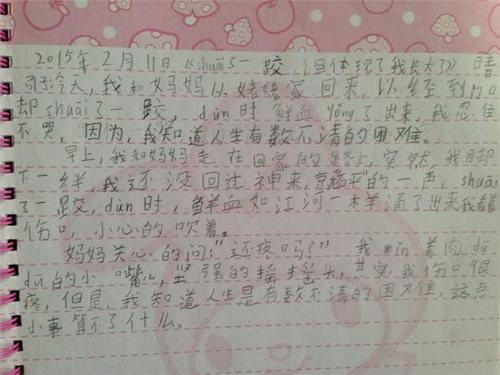 2015年2月11日《shuāi了一跤,但体现了我长大了》 晴
今天,我和妈妈从姥姥家回来,以经到门口
却shuāi了一跤,dùn时鲜血yǒng了出来,我忍住
不哭,因为,我知道人生有数不清的困难。
早上,我和妈妈走在回家的路上,突然,我目却
下一绊,我还没回过神来,"的一声,shuāi
了一跤,dùn时,鲜血如江河一样涌了出来我看着
伤口,小心的吹着。
妈妈关心的问:"还疼吗?" 我mǐn着肉dū
dū的小"嘴",坚强的摇摇头,其实,我伤口很
疼,但是,我知道人生是有数不清的困难,这点
小事算不了什么。